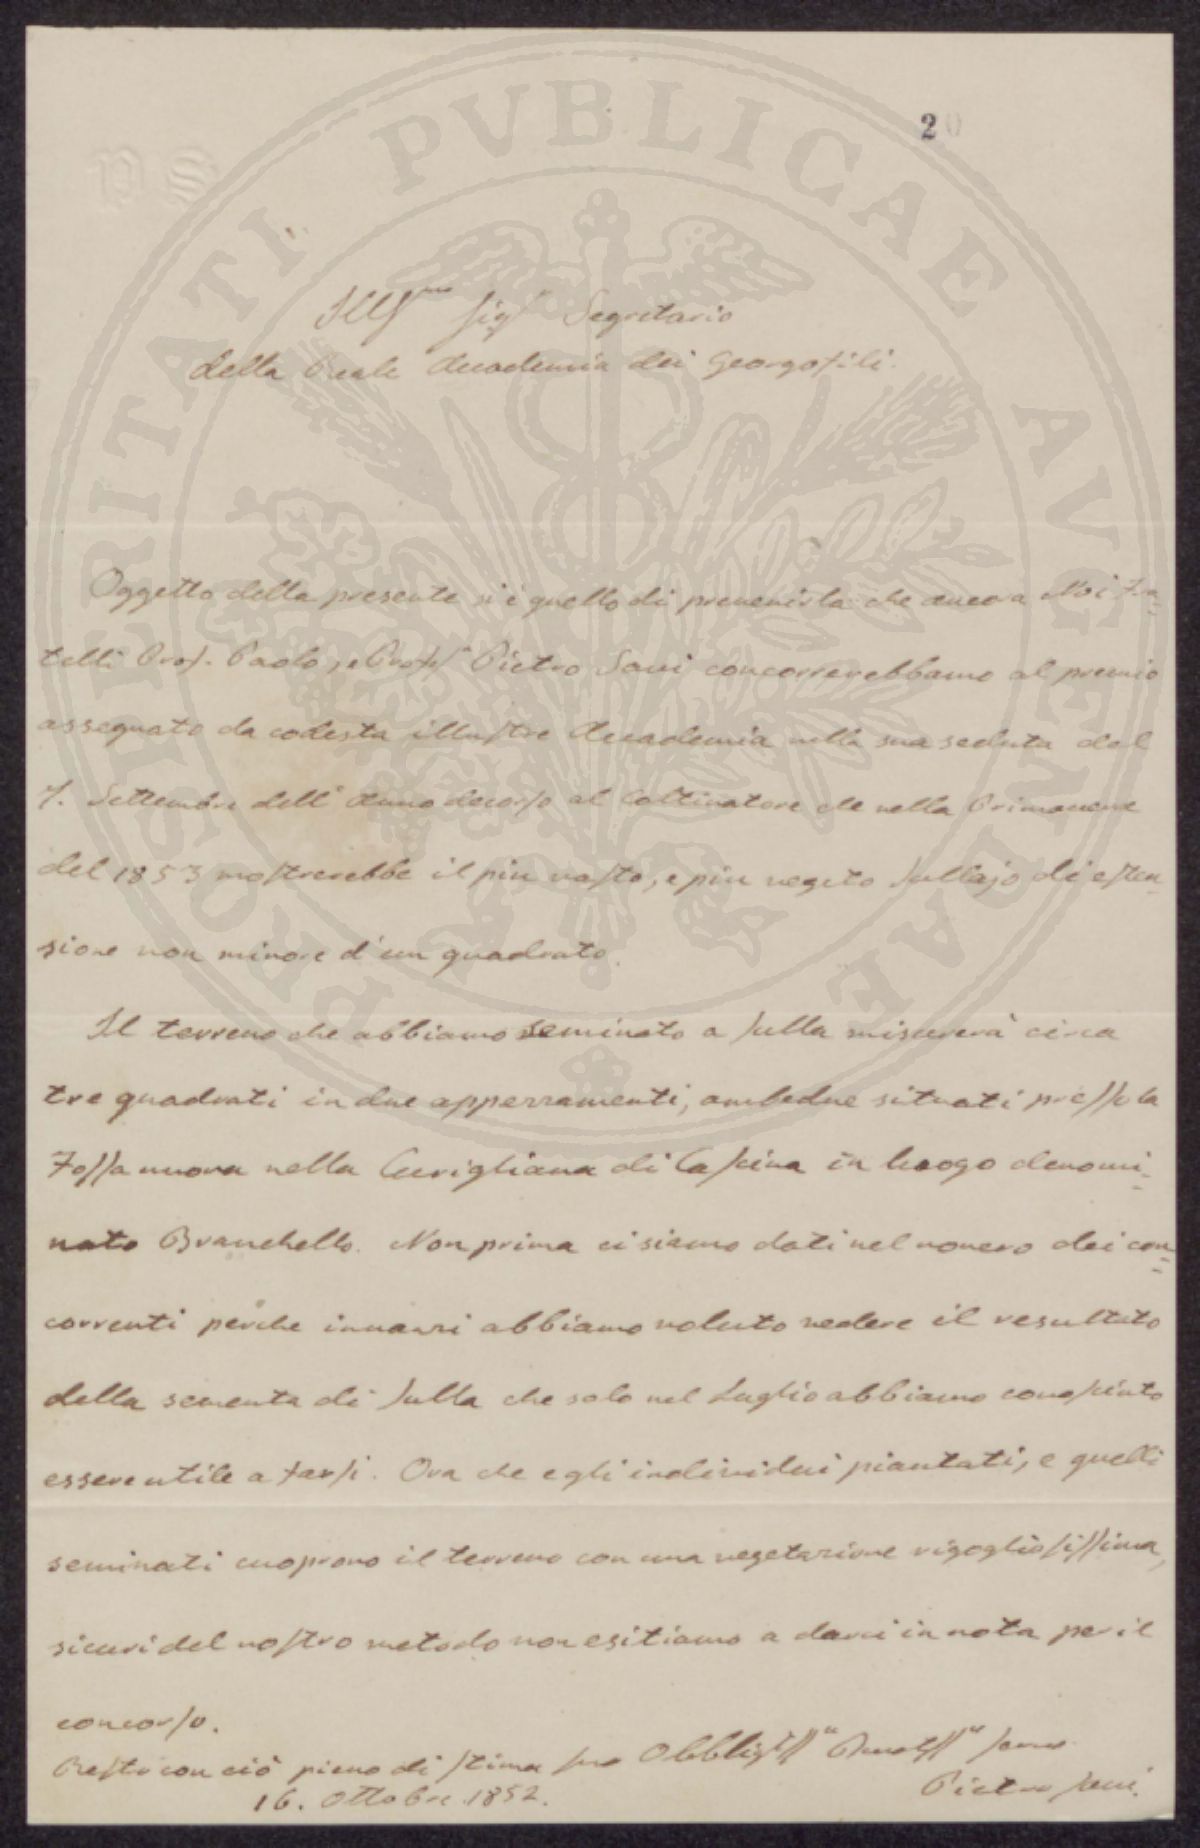 PROSPERITATI PVBLICAE AVGENDAE
20
PS
Ill.mo Sig.r Segretario
della Reale Accademia dei Georgofili.
Oggetto della presente si è quello di prevenirla che ancora Noi Fra-
telli Prof. Paolo, e Prof. Pietro Savi concorrerebbamo al premio
assegnato da codesta illustre Accademia nella sua seduta del
7. Settembre dell' Anno decorso al Coltivatore che nella Primavera
del 1853 mostrerebbe il piu vasto, e piu vegeto Sullajo di esten-
sione non minore d'un quadrato.
Il terreno che abbiamo seminato a Sulla misurerà circa
tre quadrati in due apperramenti, ambedue situati presso la
Fossa nuova nella Curigliana di Cascina in luogo denomi-
nato Branchello. Non prima ci siamo dati nel novero dei con-
correnti perche innanzi abbiamo voluto vedere il resultato
della sementa di Sulla che solo nel Luglio abbiamo conosciuto
essere utile a farsi. Ora che e gli individui piantati, e quelli
seminati cuoprono il terreno con una vegetazione rigogliosissima,
sicuri del nostro metodo non esitiamo a darci in nota per il
concorso.
Resto con ciò pieno di stima suo Obbligss.o Servo
16. Ottobre 1852.
Pietro Savi.